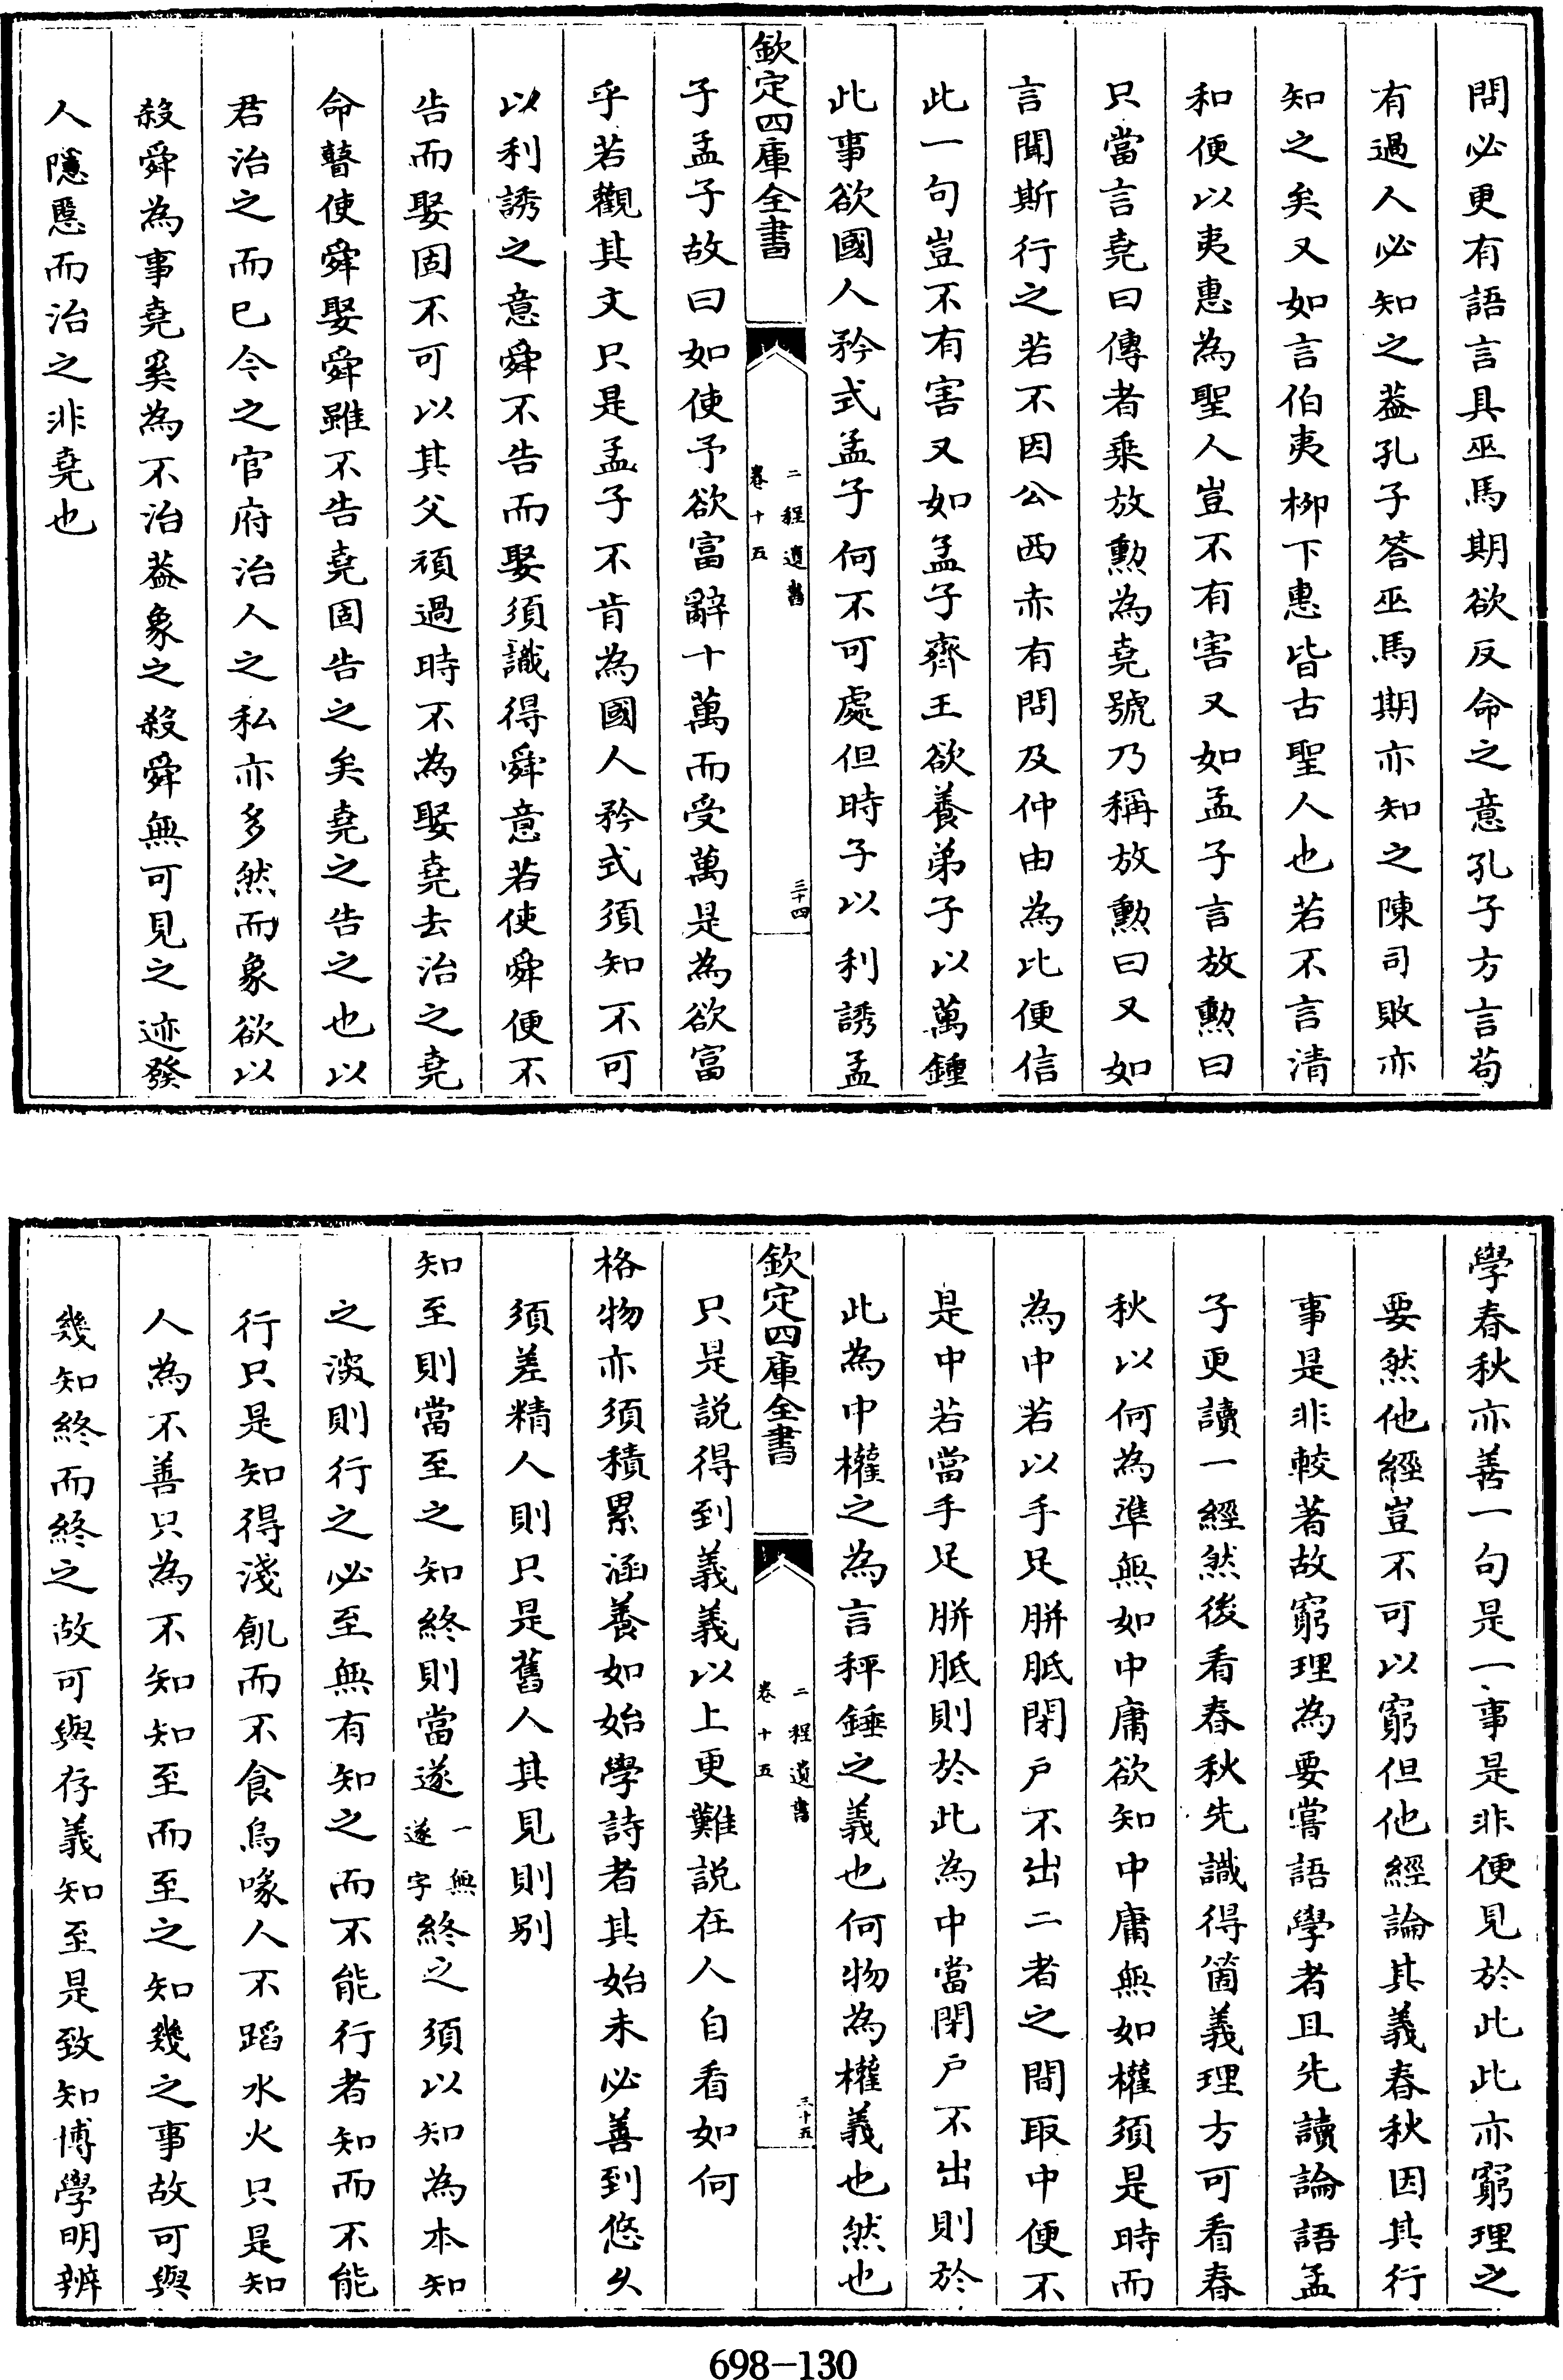 問必更有語言具巫馬期欲反命之意孔子方言苟
有過人必知之葢孔子答巫馬期亦知之陳司敗亦
知之矣又如言伯夷柳下惠皆古聖人也若不言清
和便以夷惠為聖人豈不有害又如孟子言放勲曰
只當言堯曰傳者乗放勲為堯號乃稱放勲曰又如
言聞斯行之若不因公西赤有問及仲由為比便信
此一句豈不有害又如孟子齊王欲養弟子以萬鍾
此事欲國人矜式孟子何不可處但時子以利誘孟
欽定四庫全書
二程遺書
卷十五
三十四
子孟子故曰如使予欲富辭十萬而受萬是為欲富
乎若觀其文只是孟子不肯為國人矜式須知不可
以利誘之意舜不告而娶須識得舜意若使舜便不
告而娶固不可以其父頑過時不為娶堯去治之堯
命瞽使舜娶舜雖不告堯固告之矣堯之告之也以
君治之而已今之官府治人之私亦多然而象欲以
殺舜為事堯奚為不治葢象之殺舜無可見之迹發
人隱慝而治之非堯也
學春秋亦善一句是一事是非便見於此此亦窮理之
要然他經豈不可以窮但他經論其義春秋因其行
事是非較著故窮理為要嘗語學者且先讀論語孟
子更讀一經然後看春秋先識得箇義理方可看春
秋以何為準無如中庸欲知中庸無如權須是時而
為中若以手足胼胝閉戸不出二者之間取中便不
是中若當手足胼胝則於此為中當閉戸不出則於
此為中權之為言秤錘之義也何物為權義也然也
欽定四庫全書
二程遺書
卷十五
三十五
只是說得到義義以上更難說在人自看如何
格物亦須積累涵養如始學詩者其始未必善到悠乆
須差精人則只是舊人其見則別
知至則當至之知終則當遂一無遂字終之須以知為本知
之深則行之必至無有知之而不能行者知而不能
行只是知得淺飢而不食烏喙人不蹈水火只是知
人為不善只為不知知至而至之知幾之事故可與
幾知終而終之故可與存義知至是致知博學明辨
698-130